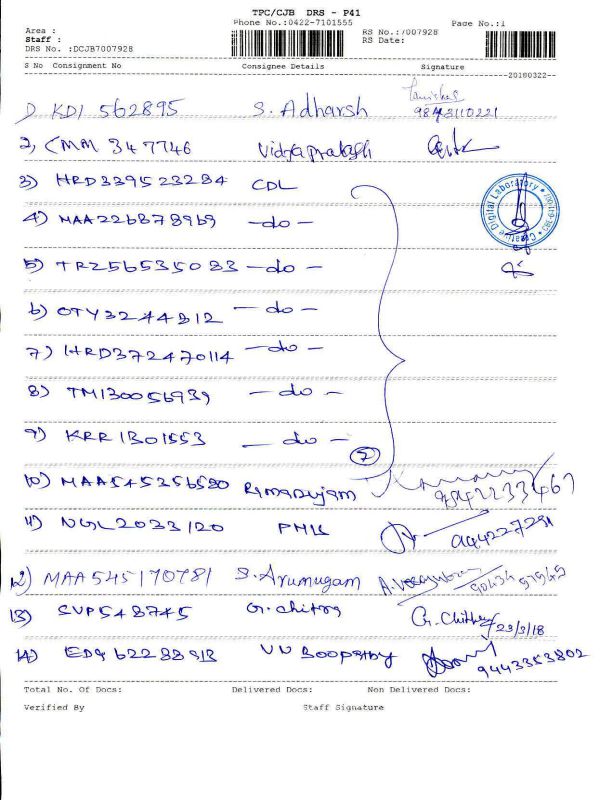 TPC/CJB DRS - P41
Phone No.:0422-7101555
Page No.:1
Area :
Staff :
DRS No. :DCJB7007928
RS No.:7007928
RS Date:
S No Consignment No Consignee Details Signature
20180322
1) KDI 562895 S. Adharsh 9843110221
2) CMM 347746 Vidyaprakash
3) HRD339523284 CDL
Creative Digital Laboratory
4) MAA226878969 -do-
5) TRZ56535083 -do-
6) OTY3244812 -do-
7) HRD372470114 -do-
8) TM130056939 -do-
9) KRR1301553 -do-
7
10) MAA545256520 Ramanujam 9842233467
11) NGL2033120 PMK 9944227291
12) MAA545170781 S. Arumugam
13) SVP548745 G. Chitra G. Chithra 23/3/18
14) VN Boopathy 9443353802
Total No. Of Docs: Delivered Docs: Non Delivered Docs:
Verified By Staff Signature